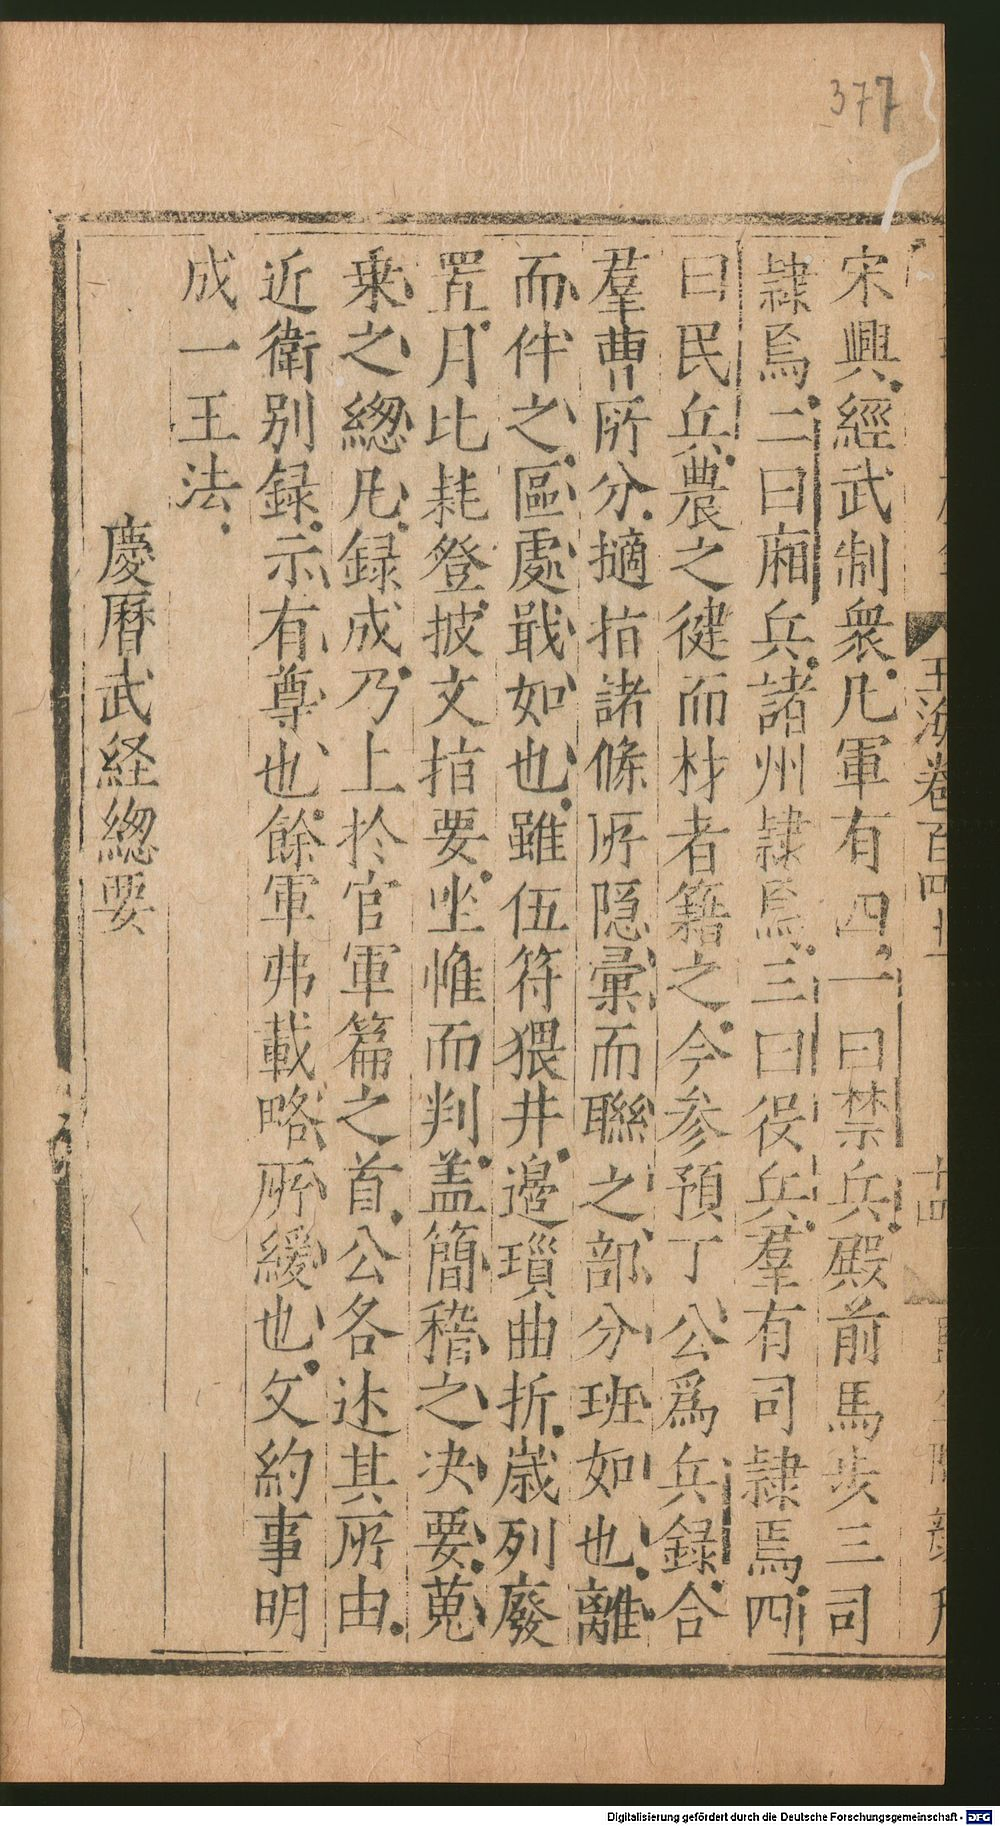 377
宋興經武制衆凡軍有四一曰禁兵殿前馬步三司
隷焉二曰廂兵諸州隷焉三曰役兵羣有司隷焉四
曰民兵農之徤而材者籍之今参預丁公爲兵録合
羣曹所分擿㨖諸條所隠彙而聮之部分班如也離
而件之區處戢如也雖伍符猥井邊瑣曲折歳列廢
置月比耗登披文㨖要坐惟而判盖簡稽之决要蒐
乗之緫凡録成乃上扵官軍篇之首公各述其所由
近衛别録示有尊也餘軍弗載略所緩也文約事明
成一王法
慶曆武経緫要
玉海卷百四十一
十四
Digitalisierung gefördert durch die Deutsche Forschungsgemeinschaft - DFG